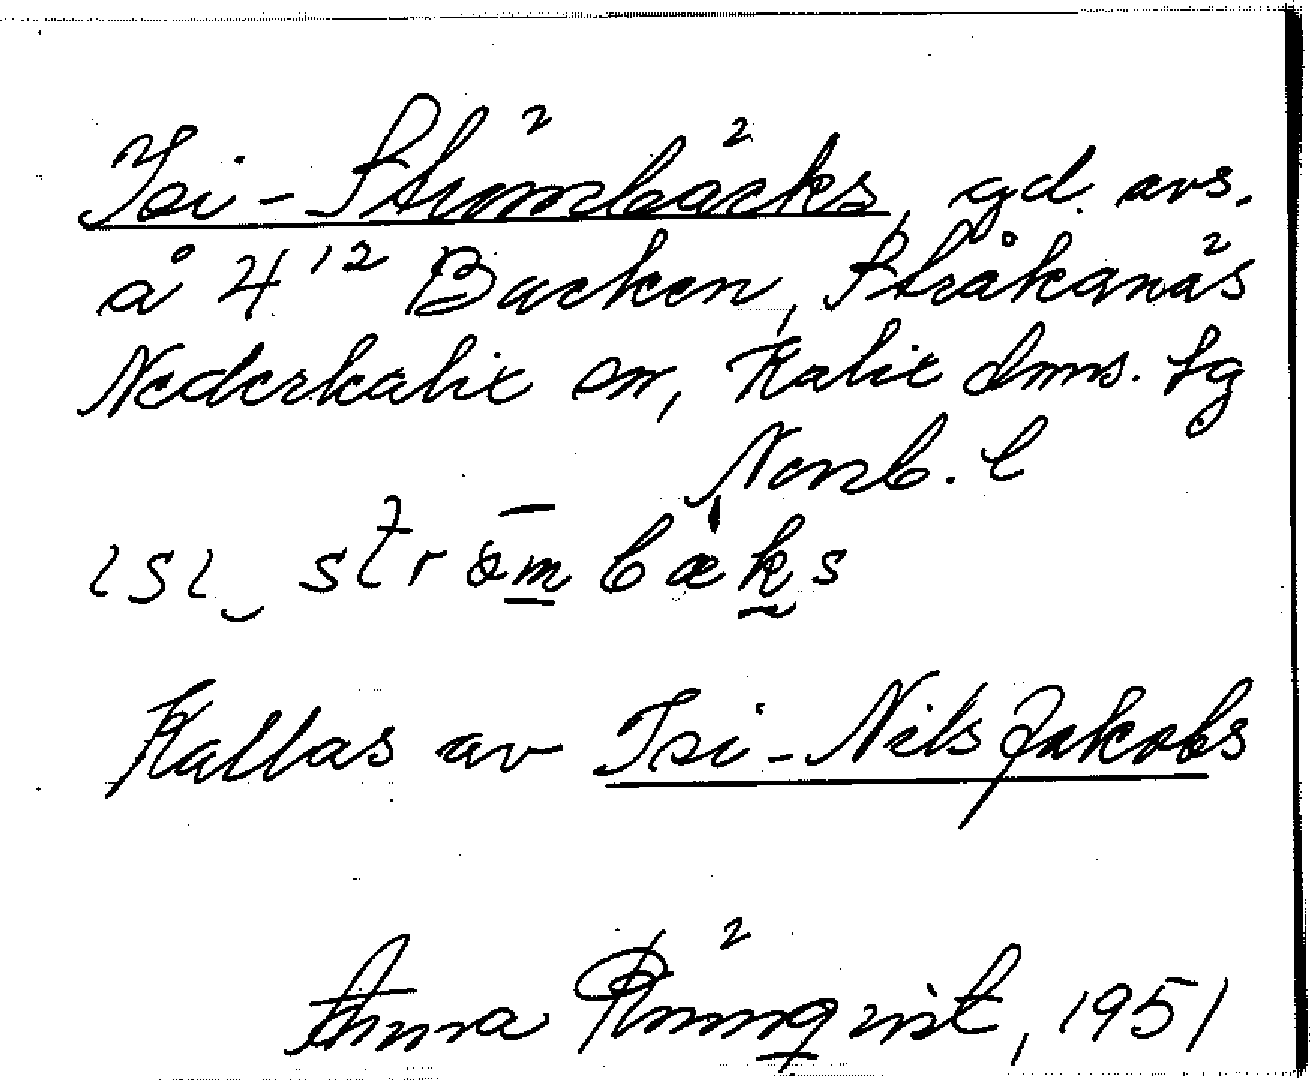 Isi-Strömbäcks, gd. avs.
å 4¹² Backen, Stråkanäs
Nederkalix sn, Kalix dmns. tg
Norrb. l
ɩsɩ strömbæks
Kallas av Isi-Nils Jakobs
Anna Rönnqvist, 1951